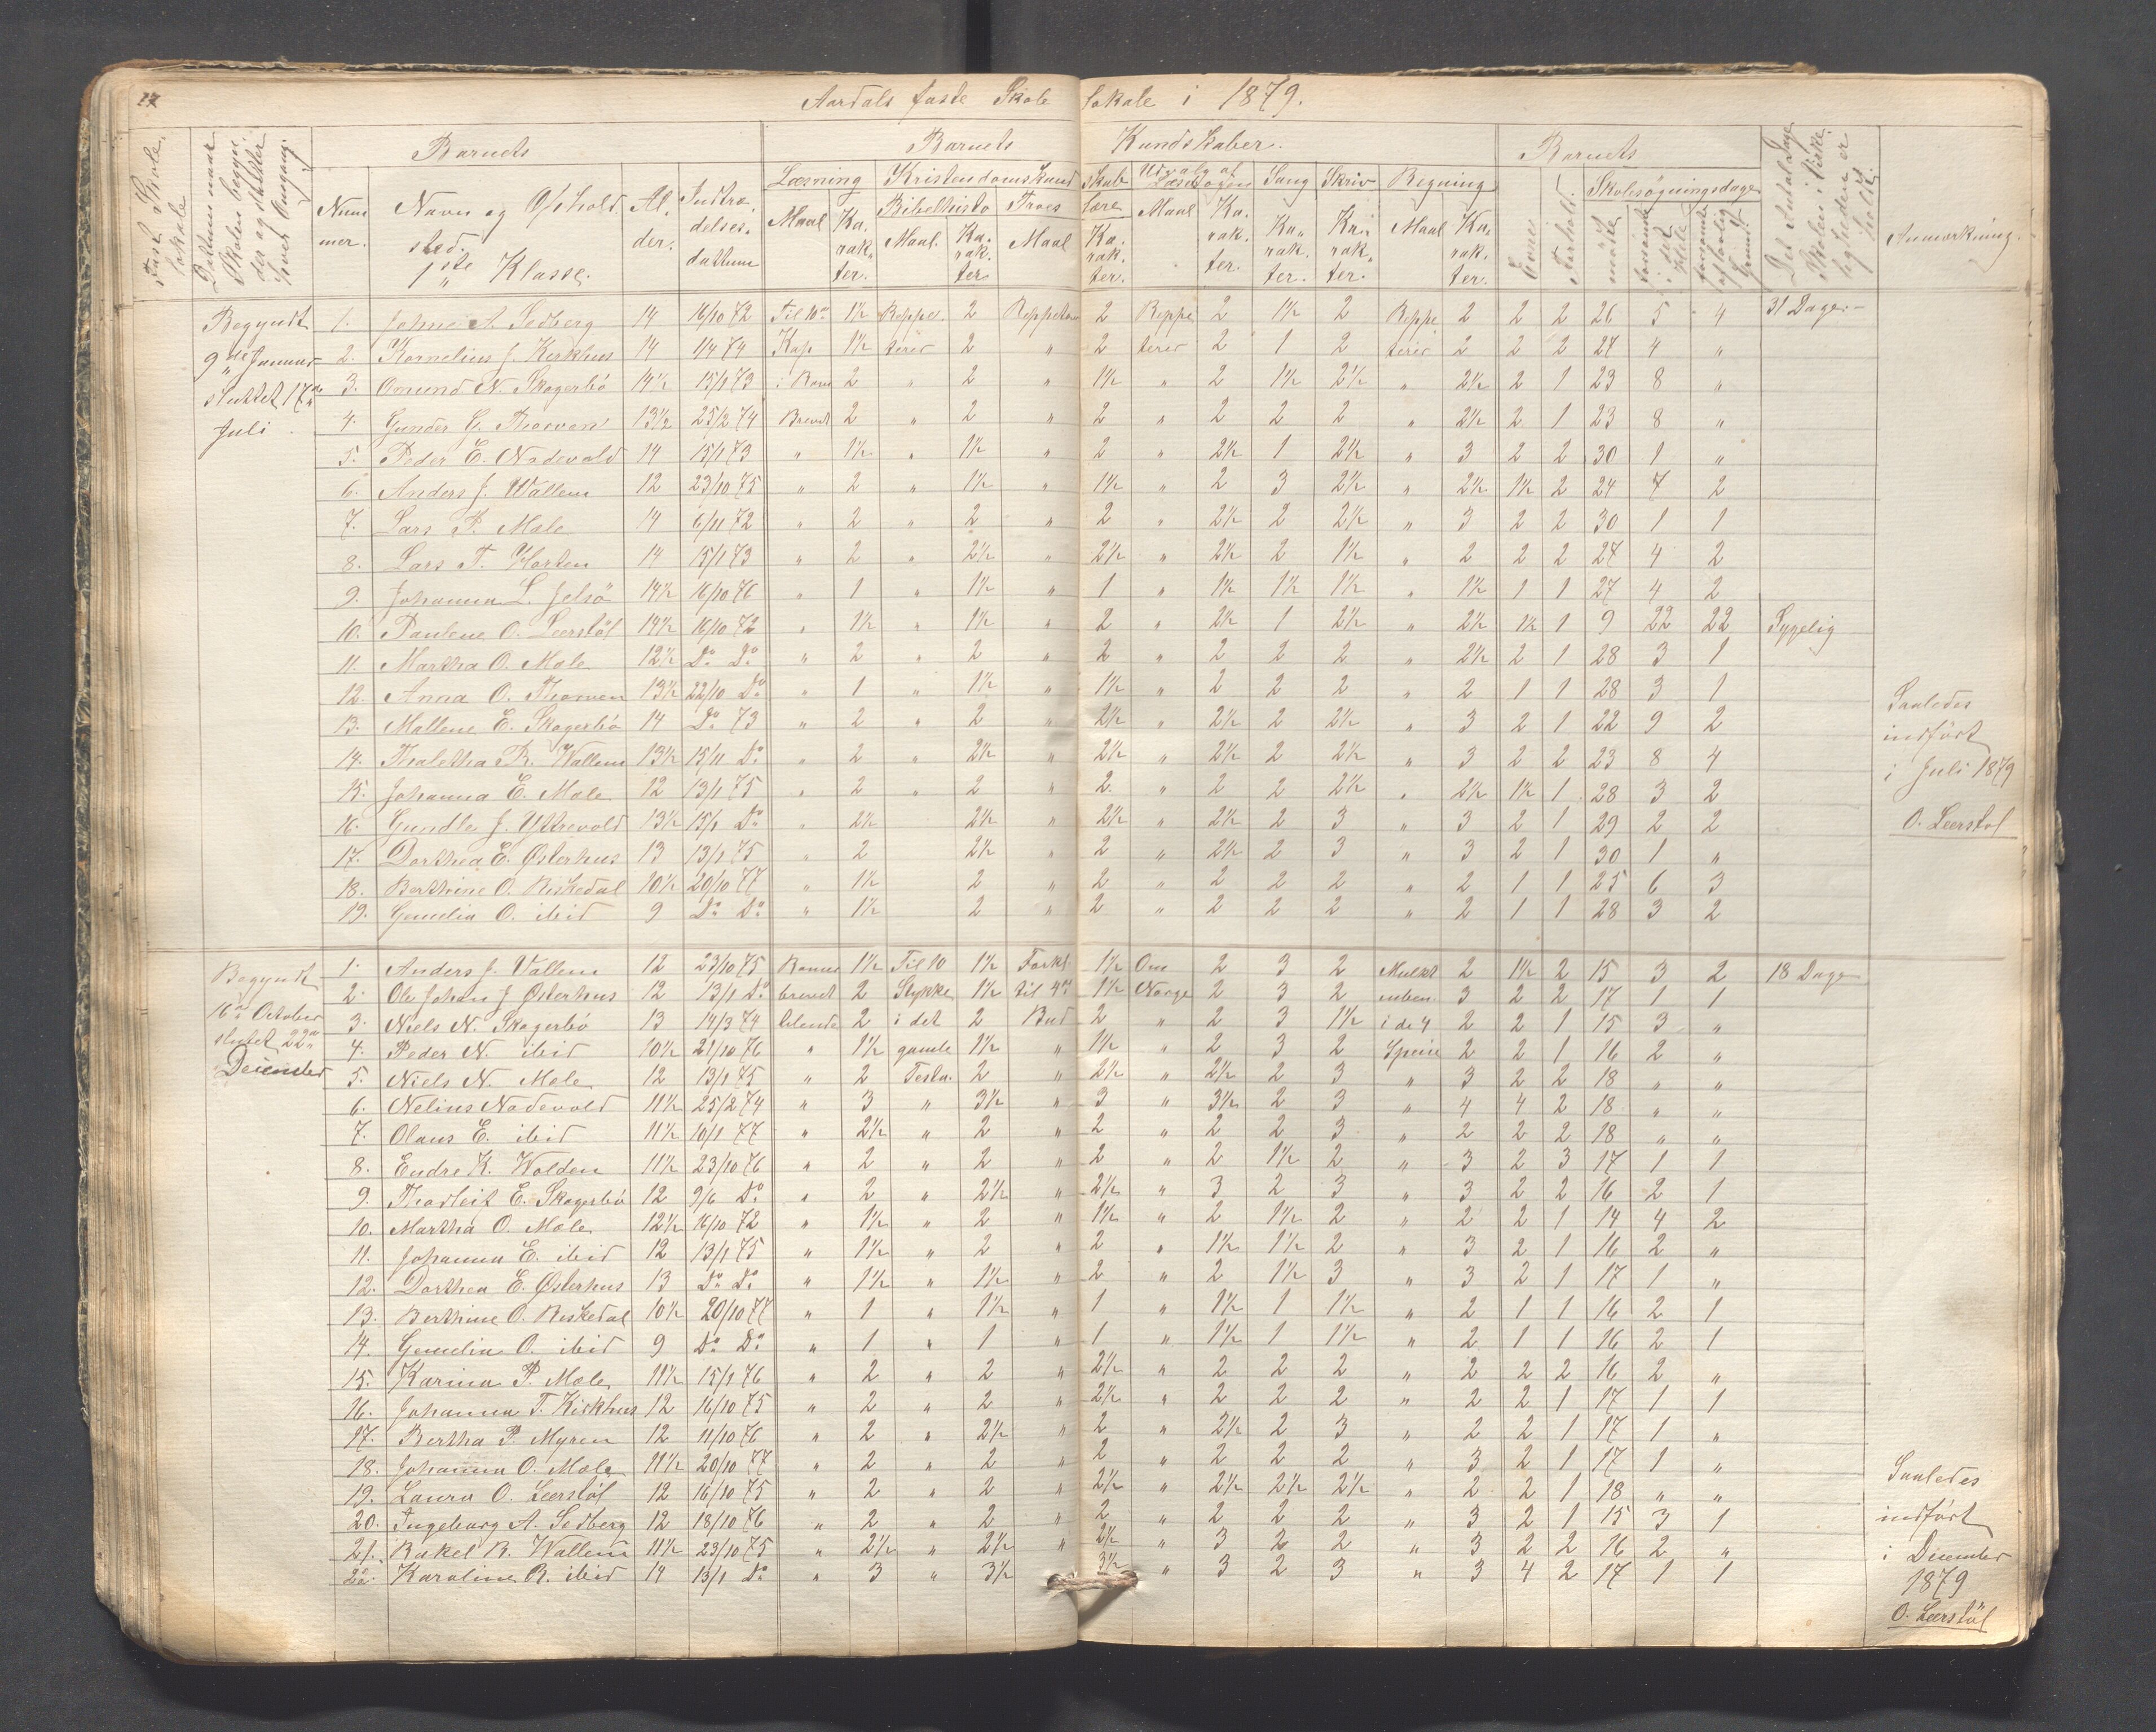 27
Aardals faste Skole lokale i 1879.
Fast Skole lokale
Datum naar Skolen begyn der og slutter hver Omgang.
Barnets
Barnets Kundskaber.
Barnets
Det Antal Dage Skolen i Virke ligheden er holdt.
Anmærkning.
Læsning Kristendomskund skab Udvalg af Læsebogen Sang Skriv Regning
Evner Forhold. Skolesøgningsdage
Num mer. Navn og Opholdsted. 1ste Klasse. Al der. Indtræ delses. datum Maal Ka. rak. ter. Bibelhisto Maal. Ka. rak. ter Troes Maal lære Ka. rak. ter. Maal Ka. rak. ter. Ka. rak. ter. Ka. rak. ter. Maal Ka. rak. ter. mødte forsømte i det Hele forsømte af lovlig Grund
Begyndt 1. Johne A. Sedberg 14 16/10 72 Til 10de 1½ Reppe. 2 Reppeteer 2 Reppe 2 1½ 2 Reppe 2 2 2 26 5 4 31 Dage.
9de Januar 2. Kornelius J. Kirkhus 14 1/4 74 Kap 1½ terer 2 " 2 terer 2 1 2 terer 2 2 2 27 4 "
sluttet 17de 3. Omund N. Skogerbö 14½ 15/1 73 i Rom 2 " 2 " 1½ " 2 1½ 2½ " 2½ 2 1 23 8 "
Juli 4. Gunder G. Thorven 13½ 25/2 74 Brevet 2 " 2 " 2 " 2 2 2 " 2½ 2 1 23 8 "
5. Peder E. Nodevold 14 15/1 73 " 1½ " 1½ " 2 " 2½ 1 2½ " 3 2 2 30 1 "
6. Anders J. Wallem 12 23/10 75 " 2 " 1½ " 1½ " 2 3 2½ " 2½ 1½ 2 24 7 2
7. Lars P. Mæle 14 6/11 72 " 2 " 2 " 2 " 2½ 2 2½ " 3 2 2 30 1 1
8. Lars T. Horten 14 15/1 73 " 2 " 2½ " 2½ " 2½ 2 1½ " 2 2 2 27 4 2
9. Johanna L. Jelsö 14½ 16/10 76 " 1 " 1½ " 1 " 1½ 1½ 1½ " 1½ 1 1 27 4 2
10. Pauline O. Leerstöl 14½ 16/10 72 " 1½ " 1½ " 2 " 2½ 1 2½ " 2½ 1½ 1 9 22 22 Sygelig
11. Martha O. Mæle 12½ Do Do " 2 " 2 " 2 " 2 2 2 " 2½ 2 1 28 3 1
12. Anna O. Thorven 13½ 22/10 Do " 1 " 1½ " 1½ " 2 2 2 " 2 1 1 28 3 1
13. Mallene E. Skogerbö 14 Do 73 " 2 " 2 " 2½ " 2½ 2 2½ " 3 2 1 22 9 2
14. Thaletha R. Wallem 13½ 15/11 Do " 2 " 2½ " 2½ " 2½ 2 2½ " 3 2 2 23 8 4
15. Johanna E. Mæle 12 13/1 75 " 2 " 2 " 2 " 2 2 2½ " 2½ 1½ 1 28 3 2
16. Gundle J. Yttrevold 13½ 15/1 Do " 2½ 2½ " 2½ " 2½ 2 3 " 3 2 1 29 2 2
17. Dorthea E. Østerhus 13 13/1 75 " 2 2½ " 2 " 2½ 2 3 " 3 2 1 30 1 "
18. Berthine O. Riskedal 10½ 20/10 77 " 1½ 2 " 2 " 2 2 2 " 2 1 1 25 6 3
19. Gemelia O. ibid 9 Do Do " 1½ 2 " 2 " 2 2 2 " 2 1 1 28 3 2
Saaledes
indført
i Juli 1879
O. Leerstöl
Begyndt 1. Anders J. Vallem 12 23/10 75 Romer 1½ Til 10 1½ Forkl. 1½ Om 2 3 2 Mulkt 2 1½ 2 15 3 2 18 Dage
2. Ole Johan J. Østerhus 12 13/1 Do brevet 2 Stykke 1½ til 4de 1½ Norge 2 3 2 3 2 2 17 1 1
16de October 3. Niels N. Skogerbö 13 14/3 74 2 i det 2 Bud 2 " 2 3 1½ i de 4 2 2 1 15 3 "
slutet 22de 4. Peder N. ibid 10½ 21/10 76 " 1½ gamle 1½ " 1½ " 2 3 2 Speise 2 2 1 16 2 "
December 5. Niels N. Mæle 12 13/1 75 " 2 Testa. 2 " 2½ " 2½ 2 3 " 3 2 2 18 " "
6. Nelius Nodevold 11½ 25/2 74 " 3 " 3½ " 3 " 3½ 2 3 " 4 4 2 18 " "
7. Olaus E. ibid 11½ 10/1 77 " 2½ " 2 " 2 " 2 2 3 " 2 2 2 18 " "
8. Endre K. Wolden 11½ 23/10 76 " 2 " 2 " 2 " 2 1½ 2 " 3 2 3 17 1 1
9. Thorleif E. Skogerbö 12 9/6 Do " 2 " 2½ " 2½ " 3 2 3 " 3 2 2 16 2 1
10. Martha O. Mæle 12½ 16/10 72 " 1½ " 2 " 1½ " 2 1½ 2 " 2 2 1 14 4 2
11. Johanna E. ibid 12 13/1 75 " 1½ " 2 " 2 " 1½ 1½ 2 " 3 2 1 16 2 "
12. Dorthea E. Østerhus 13 Do Do " 1½ " 1½ " 2 " 2 1½ 3 " 3 2 1 17 1 "
13. Berthine O. Riskedal 10½ 20/10 77 " 1 " 1½ " 1 " 1½ 1 1½ " 2 1 1 16 2 1
14. Gemelia O. ibid 9 Do Do " 1 " 1 " 1 " 1½ 1 1½ " 2 1 1 16 2 1
15. Karina P. Mæle 11½ 15/1 76 " 2 " 2 " 2½ " 2 2 2 " 2 2 2 16 2 "
16. Johanna T. Kirkhus 12 16/10 75 " 2 " 2 " 2½ " 2 2 2 " 2 2 1 17 1 1
17. Bertha P. Myren 12 11/10 76 " 2 " 2½ " 2 " 2½ 2 3 " 2 2 1 17 1 "
18. Johanna O. Mæle 11½ 20/10 77 " 2 " 2 " 2 " 2 2 2 " 3 2 1 17 1 "
19. Laura O. Leerstöl 12 16/10 75 " 2 " 2 " 2½ " 2½ 2½ 2½ " 2 2 1 18 " "
20. Ingeborg A. Sedberg 12 18/10 76 " 2 " 2 " 2 " 2 2 2 " 3 2 1 15 3 1
21. Rakel R. Wallem 11½ 23/10 75 " 2½ " 2½ " 2½ " 3 2 2 " 3 2 2 16 2 "
22. Karoline R. ibid 14 13/1 Do " 3 " 3½ 3½ " 3 2 3 " 3 4 2 17 1 1
Saaledes
indført
i December
1879
O. Leerstöl